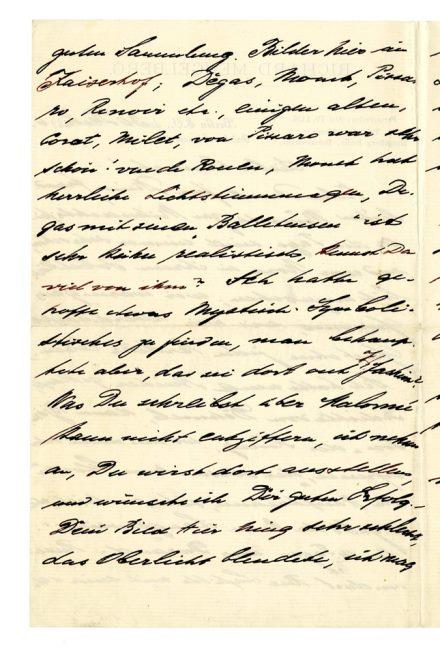 guten Sammlung Bilder hier im
Kaiserhof; Dégas, Monet, Pissa-
ro, Renoir etc. einigen alten,
Corot, Milet, von Pissaro war sehr
schön: rue de Rouen, Monet hat
herrliche Lichtstimmungen, De-
gas mit seinen "Balleteusen" ist
sehr kühn realistisch, kennst Du
viel von ihm? Ich hatte ge-
hofft etwas Mystisch-Symboli-
stisches zu finden, man behaup-
tete aber, das sei dort
Was Du schreibst über
kann nicht entziffern, ich nehme
an, Du wirst dort ausstellen
und wünsche ich Dir guten Erfolg.
Dein Bild hier hing sehr schlecht,
das Oberlicht blendete, ich mag